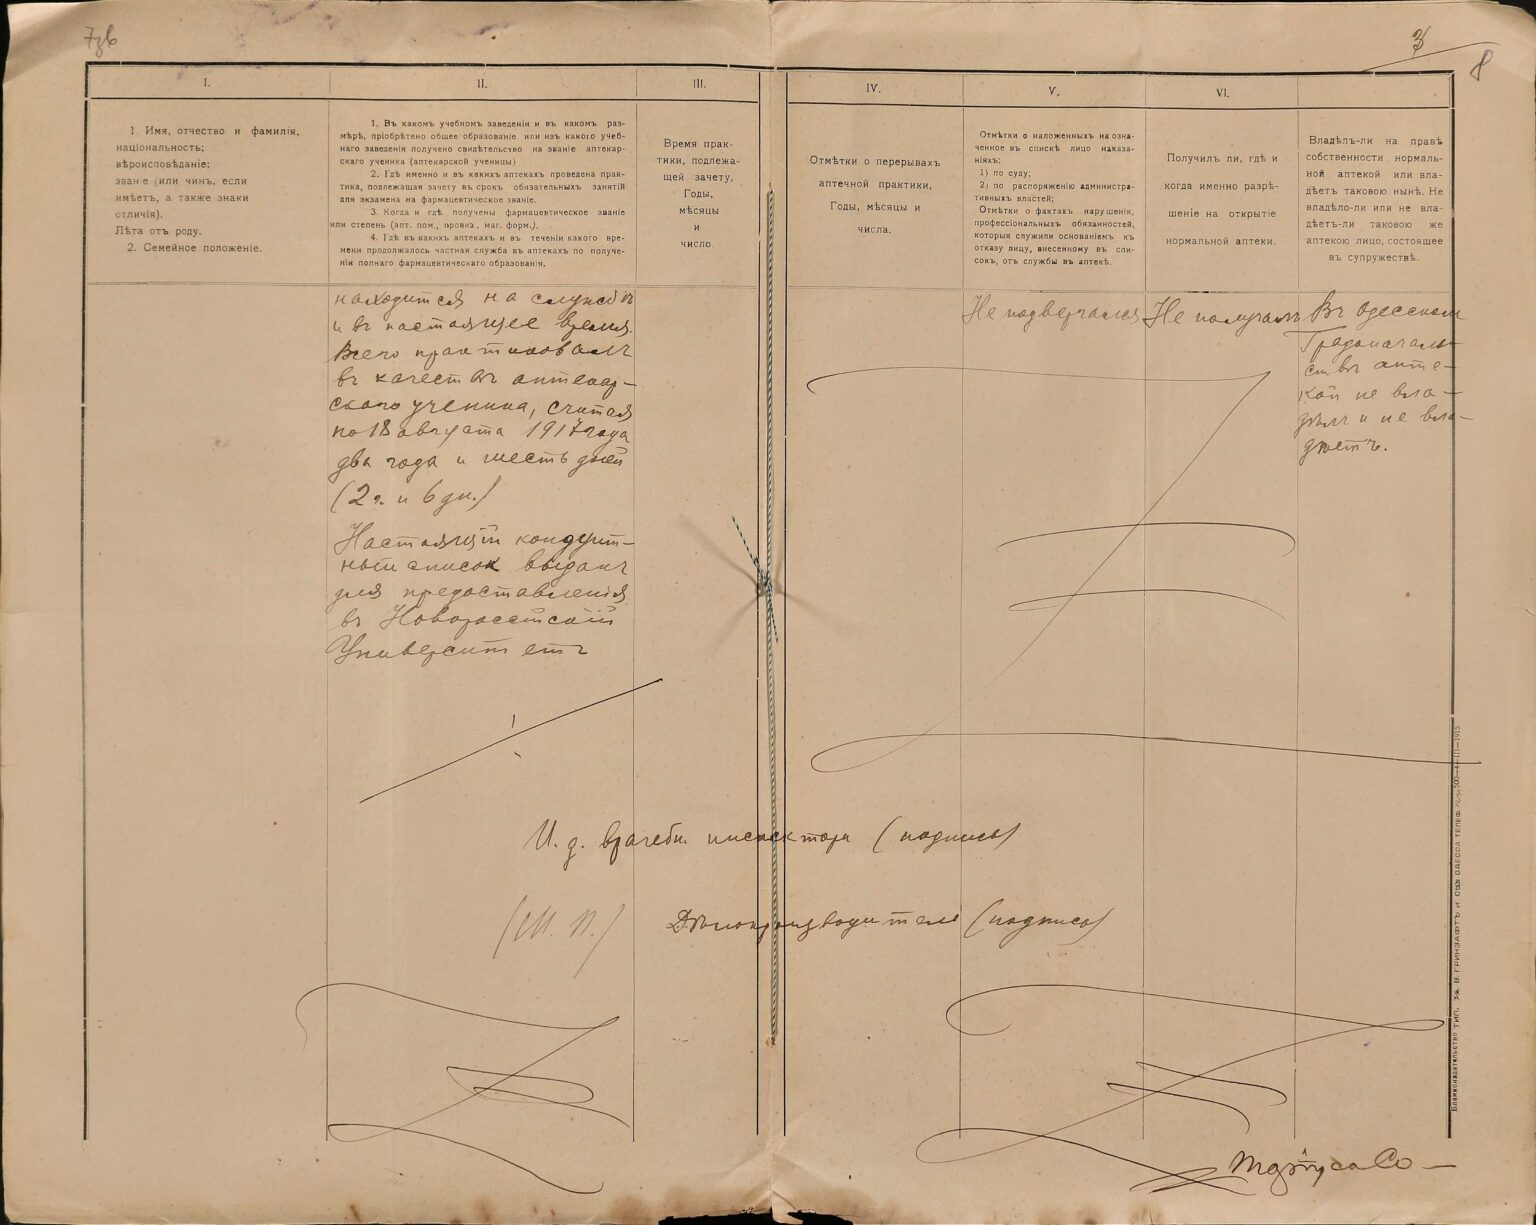 7зв
3
8
I.
II.
III.
IV.
V.
VI.
1. Имя, отчество и фамилія,
національность;
вѣроисповѣданіе;
званіе (или чинъ, если
имѣетъ, а также знаки
отличія).
Лѣта отъ роду.
2. Семейное положеніе.
1. Въ какомъ учебномъ заведеніи и въ какомъ раз-
мѣрѣ, пріобрѣтено общее образованіе или изъ какого учеб-
наго заведенія получено свидѣтельство на званіе аптекар-
скаго ученика (аптекарской ученицы)
2. Гдѣ именно и въ какихъ аптекахъ проведена прак-
тика, подлежащая зачету въ срокъ обязательныхъ занятій
для экзамена на фармацевтическое званіе.
3. Когда и гдѣ получены фармацевтическое званіе
или степень (апт. пом., провиз., маг. форм.).
4. Гдѣ въ какихъ аптекахъ и въ теченіи какого вре-
мени продолжалось частная служба въ аптекахъ по получе-
ніи полнаго фармацевтическаго образованія.
Время прак-
тики, подлежа-
щей зачету,
Годы,
мѣсяцы
и
число.
Отмѣтки о перерывахъ
аптечной практики,
Годы, мѣсяцы и
числа.
Отмѣтки о наложенныхъ на озна-
ченное въ спискѣ лицо наказа-
ніяхъ;
1) по суду;
2) по распоряженію администра-
тивныхъ властей;
Отмѣтки о фактахъ нарушенія,
профессіональныхъ обязанностей,
которыя служили основаніемъ къ
отказу лицу, внесенному въ спи-
сокъ, отъ службы въ аптекѣ.
Получилъ ли, гдѣ и
когда именно разрѣ-
шеніе на открытіе
нормальной аптеки.
Владѣлъ-ли на правѣ
собственности нормаль-
ной аптекой или вла-
дѣетъ таковою нынѣ. Не
владѣло-ли или не вла-
дѣетъ-ли таковою же
аптекою лицо, состоящее
въ супружествѣ.
находится на службѣ
и въ настоящее время.
Всего практиковалъ
въ качествѣ аптекар-
скаго ученика, считая
по 18 августа 1917 года
два года и шесть дней
(2 г. и 6 дн.)
Настоящій кондуит-
ный списокъ выданъ
для предоставленія
въ Новороссійскій
Университетъ
Не подвергался
Не получалъ
Въ Одесскомъ
Градоначаль-
ствѣ апте-
кой не вла-
дѣлъ и не вла-
дѣетъ.
И. д. врачебн. инспектора (подпись)
(М. П.)
Дѣлопроизводитель (подпись)
Бланкоиздательство тип. Э-А. В. ГРИНЗАФТЪ и Сзъ ОДЕССА